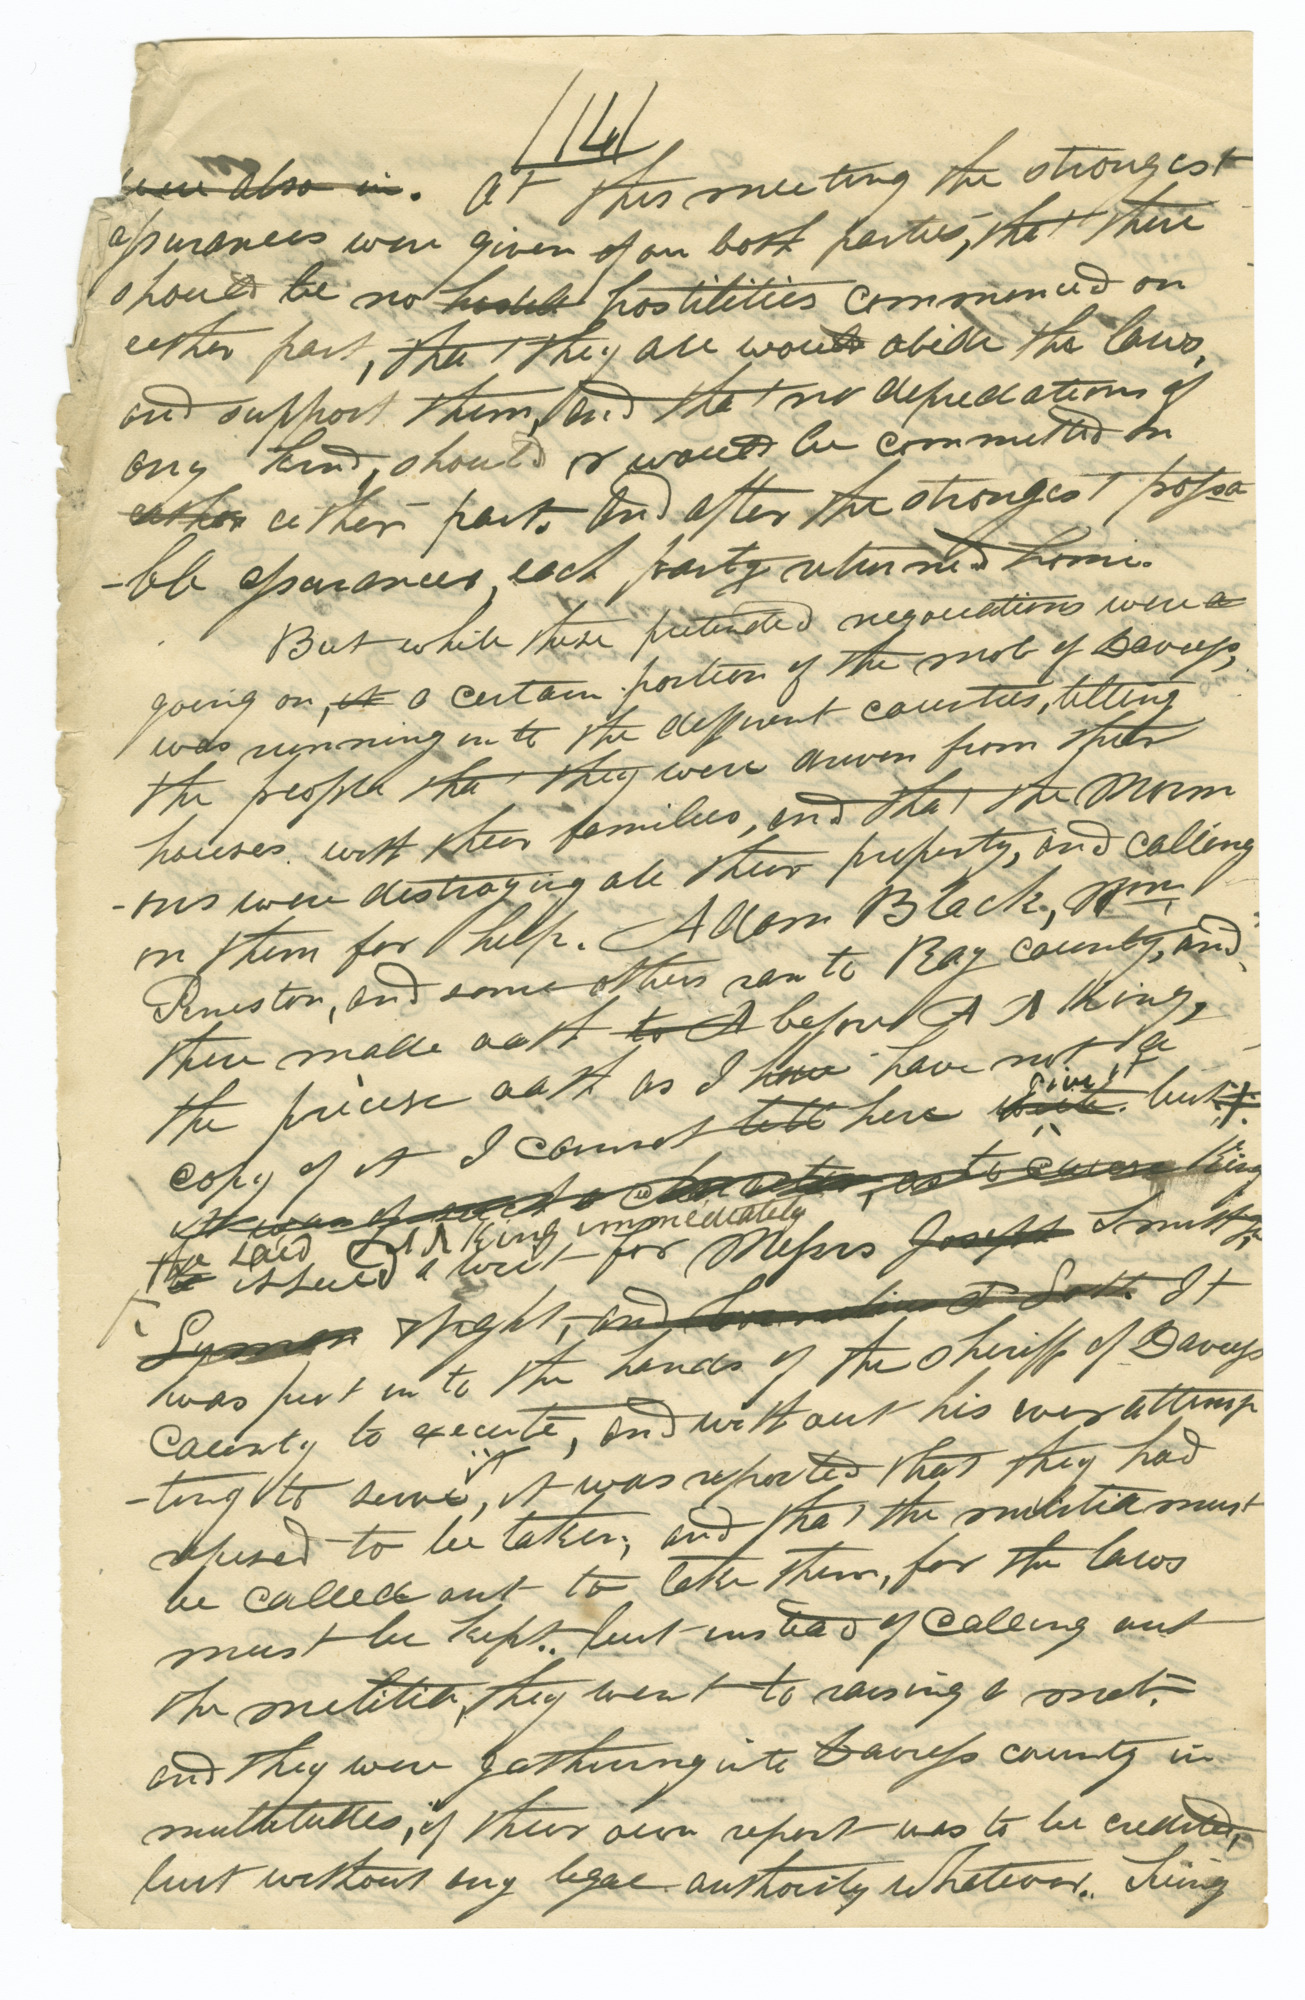 14
were also in. At this meeting the strongest
assurances were given of on both parties, that there
should be no hostile hostilities commenced on
either part, that they all would abide the laws,
and support them, and that no depredations of
any kind, should or would be committed on
either either part. And after the strongest possa
-ble assurances, each party returned home.
But while these pretended negociations were a
going on, it a certain portion of the mob of Daviess,
was running in to the different counties, telling
the people that they were driven from their
houses with their families, and that the Morm
-ons were destroying all their property, and calling
on them for help. Adam Black, Wm.
Peneston, and some others ran to Ray county, and
there made oath to A before A A King,
the precise oath as I have have not a
copy of it I cannot tell here write give it but
it was of such a character, as to cause King
the said A A King immediately
to issued a writ for Messrs Joseph Smith Jr
Lyman Wight, and It
was put in to the hands of the sheriff of Daviess
County to execute, and without his ever attemp
-ting to serve it, it was reported that they had
refused to be taken, and that the militia must
be called out to take them, for the laws
must be kept. but instead of calling out
the militia, they went to raising a mob.
and they were gathering into Daviess county in
multitudes, if their own report was to be credited,
but without any legal authority whatever. King